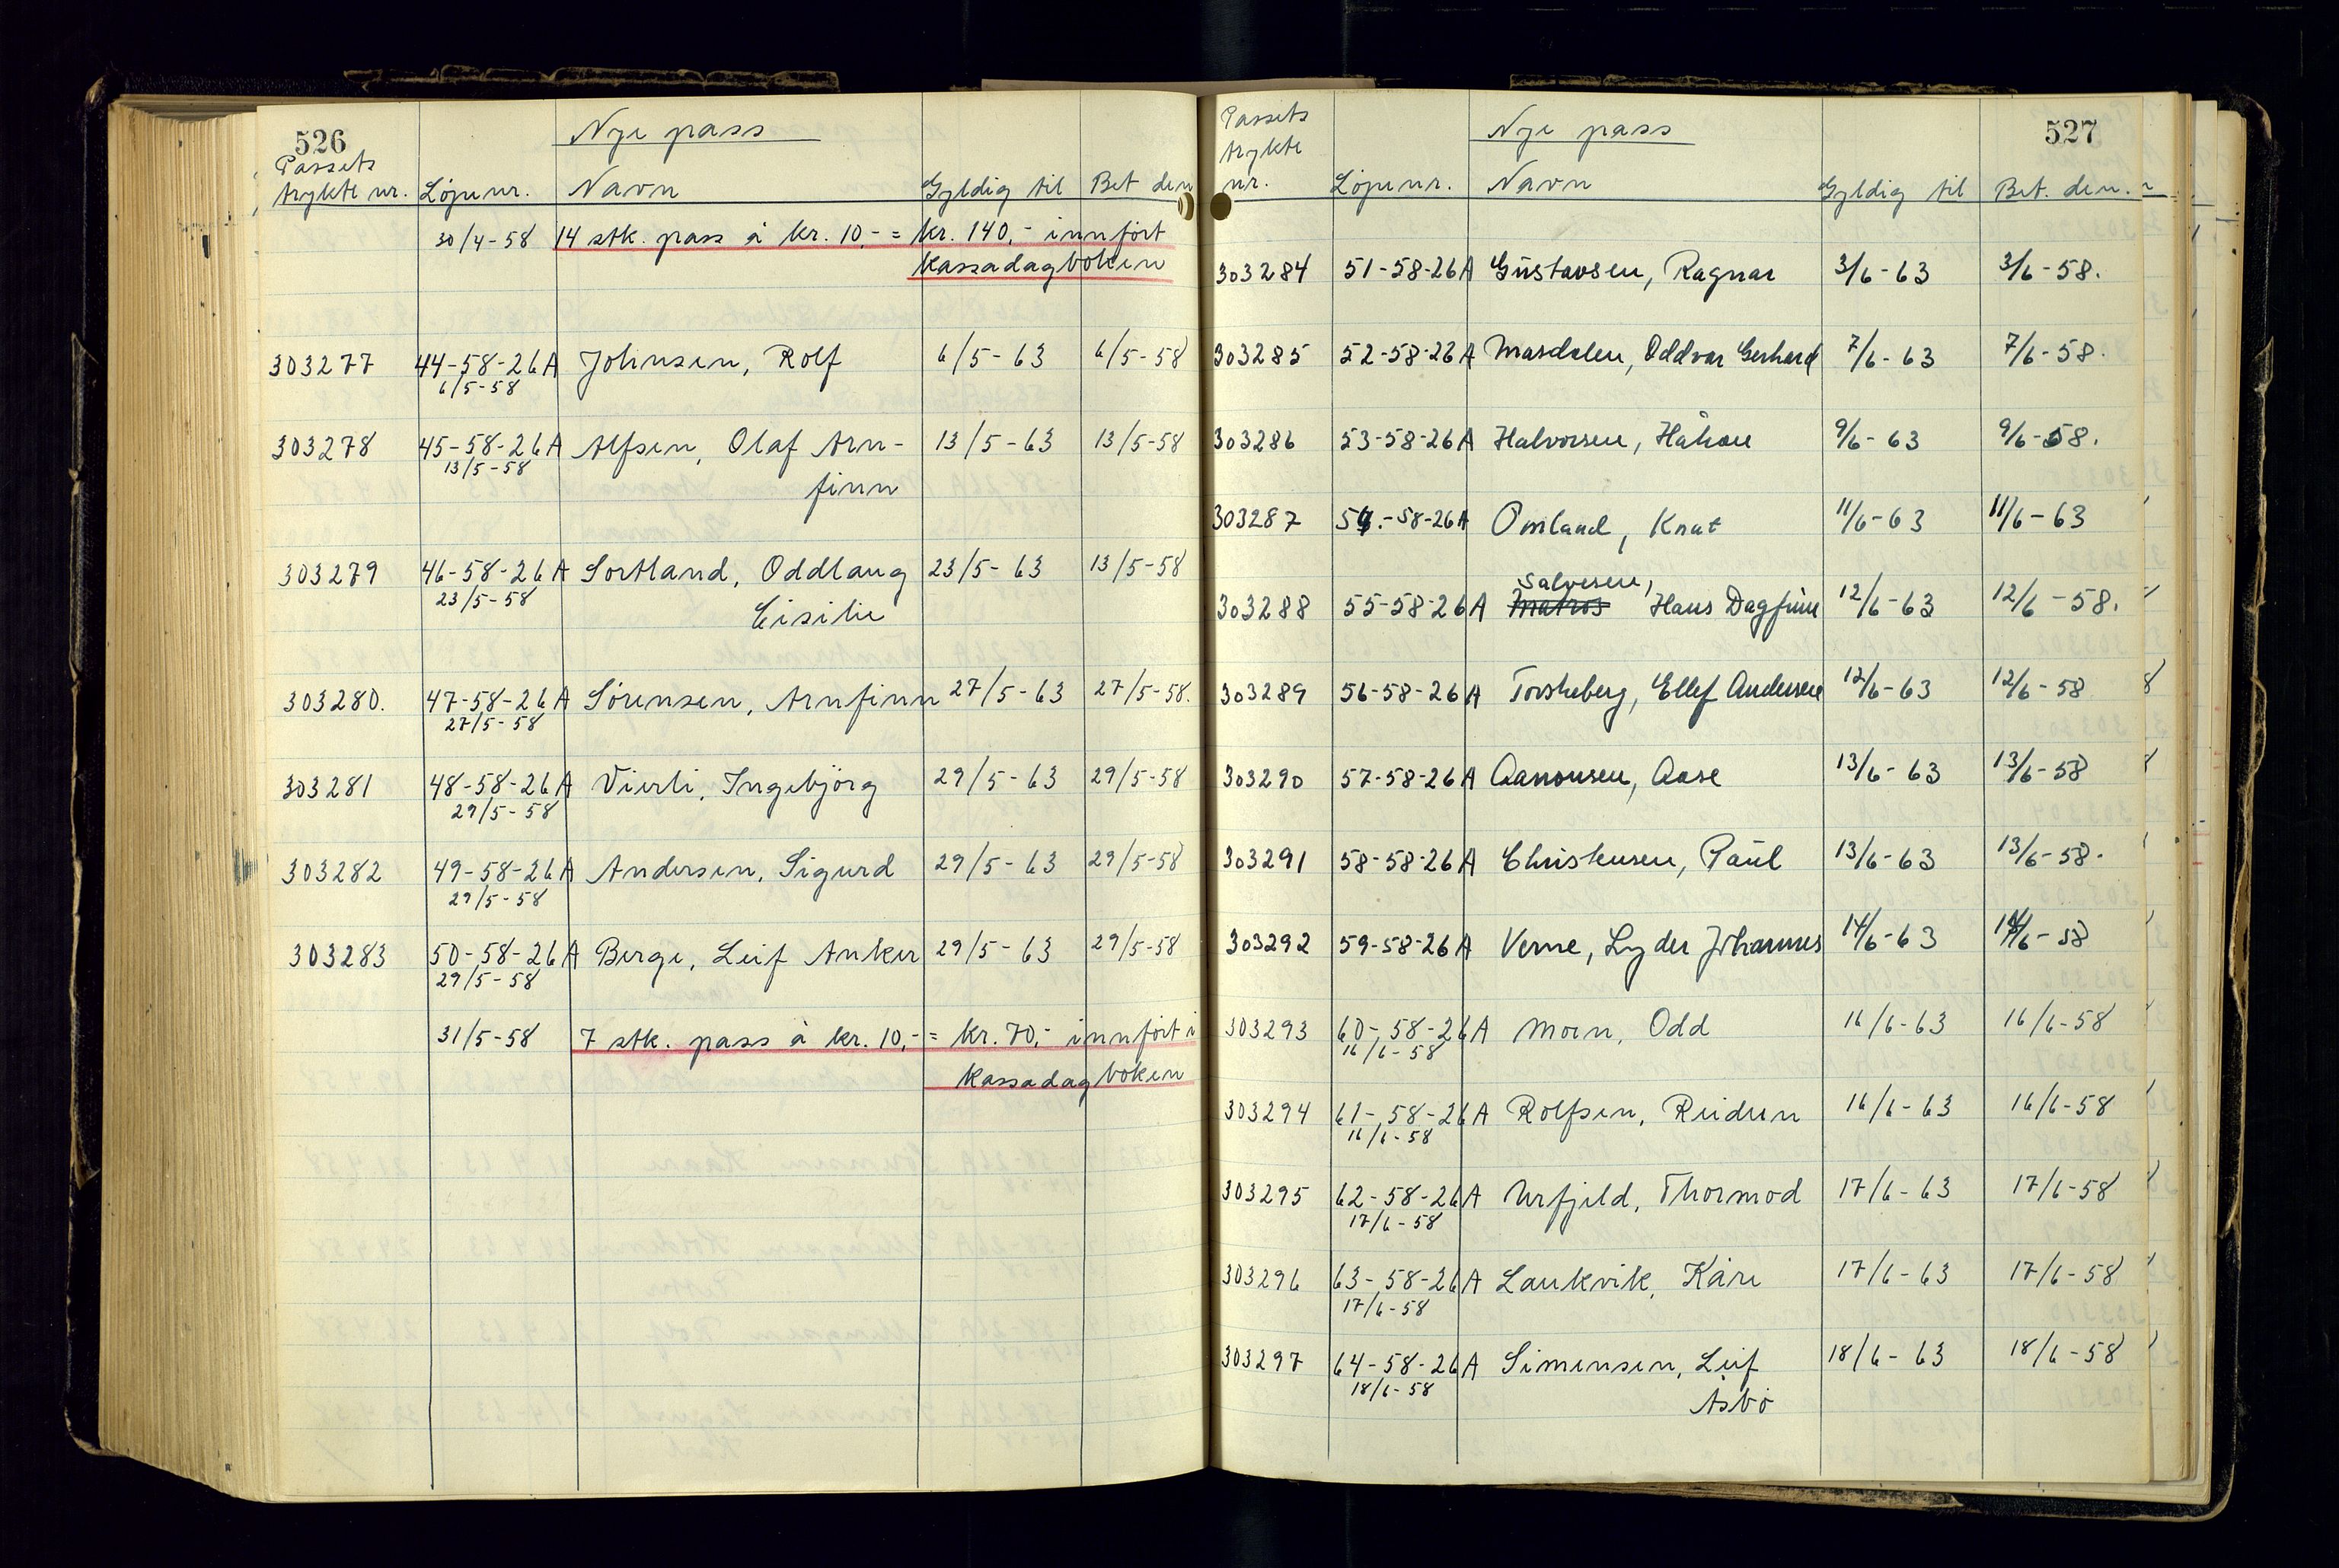 526
Nye pass
Passets
trykte nr. Löpenr. Navn Gyldig til Bet den
30/4-58 14 stk. pass à kr. 10,- = kr. 140,- innfört
kassadagboken
303277 44-58-26A Johnsen, Rolf 6/5-63 6/5-58
6/5-58
303278 45-58-26A Alfsen, Olaf Arn- 13/5-63 13/5-58
13/5-58
finn
303279 46-58-26A Sortland, Oddlaug 23/5-63 13/5-58
23/5-58
Eisilie
303280. 47-58-26A Sörensen, Arnfinn 27/5-63 27/5-58.
27/5-58
303281 48-58-26A Vierli, Ingebjörg 29/5-63 29/5-58
29/5-58
303282 49-58-26A Andersen, Sigurd 29/5-63 29/5-58
29/5-58
303283 50-58-26A Berge, Leif Anker 29/5-63 29/5-58
29/5-58
31/5-58 7 stk. pass à kr. 10,- = kr. 70,- innfört i
kassadagboken
527
Passets
trykte
nr. Löpenr. Navn Gyldig til Bet. den.
Nye pass
303284 51-58-26A Gustavsen, Ragnar 3/6-63 3/6-58.
303285 52-58-26A Masdalen, Oddvar Gerhard 7/6-63 7/6-58.
303286 53-58-26A Halvorsen, Håkon 9/6-63 9/6-58.
303287 54.-58-26A Omland, Knut 11/6-63 11/6-63
Salvesen,
303288 55-58-26A Matros Hans Dagfinn 12/6-63 12/6-58.
303289 56-58-26A Torskeberg, Ellef Andersen 12/6-63 12/6-58
303290 57-58-26A Aanonsen, Aase 13/6-63 13/6-58
303291 58-58-26A Christensen, Paul 13/6-63 13/6-58.
303292 59-58-26A Verne, Lyder Johannes 14/6-63 14/6-58
303293 60-58-26A Moen, Odd 16/6-63 16/6-58
16/6-58
303294 61-58-26A Rolfsen, Reidun 16/6-63 16/6-58
16/6-58
303295 62-58-26A Urfjeld, Thormod 17/6-63 17/6-58
17/6-58
303296 63-58-26A Laukvik, Kåre 17/6-63 17/6-58
17/6-58
303297 64-58-26A Simensen, Leif 18/6-63 18/6-58
18/6-58
Åsbö